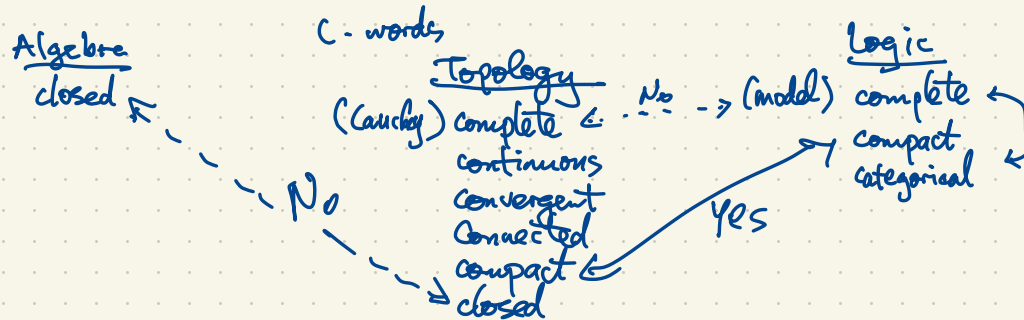 C-words
Algebra
closed
No
Topology
(Cauchy) complete
continuous
convergent
Connected
compact
closed
No
Yes
Logic
(model) complete
compact
categorical